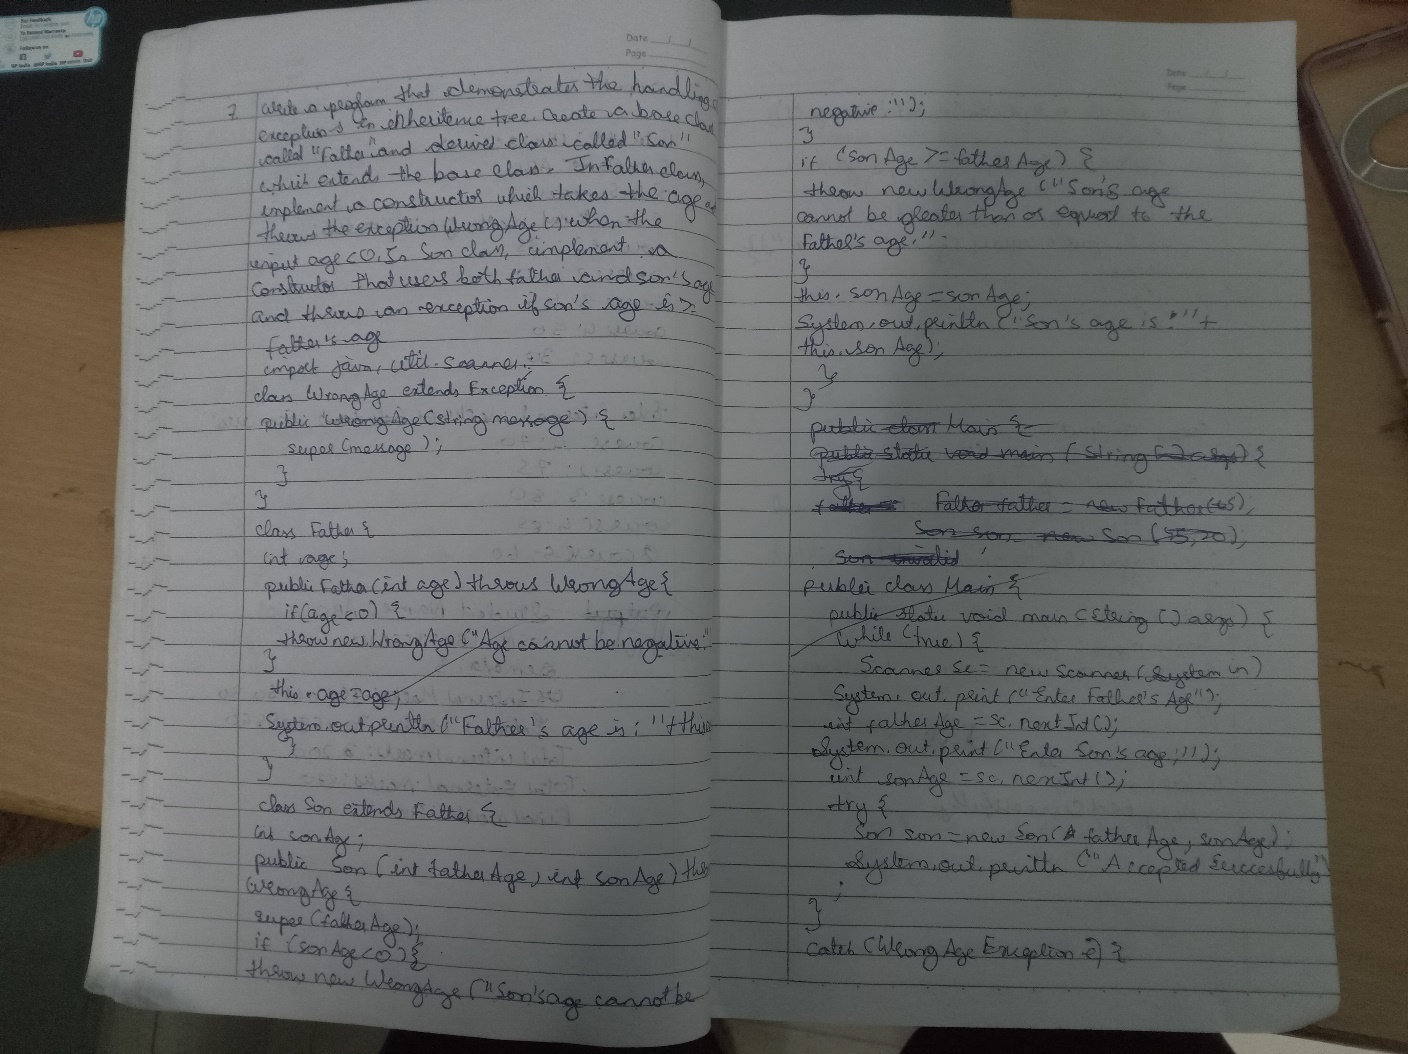 Date / /
Page
7 Write a program that demonstrates the handling
exceptions in inheritence tree. Create a base class
called "Father" and derived class called "Son"
which extends the base class. In Father class,
implement a constructor which takes the age
throws the exception WrongAge() when the
input age<0. In Son class, implement a
Constructor that uses both father and son's age
and throws an exception if son's age is >=
father's age
import java.util.Scanner;
class WrongAge extends Exception {
public WrongAge(string message) {
super(message);
}
}
class Father {
int age;
public Father(int age) throws WrongAge {
if(age<0) {
throw new WrongAge("Age cannot be negative."
}
this.age=age;
System.out.println("Father's age is: "+this
}
}
class Son extends Father {
int sonAge;
public Son (int fatherAge, int sonAge) thr
WrongAge {
super(fatherAge);
if (sonAge<0){
throw new WrongAge("Son's age cannot be
Date / /
Page
negative:");
}
if (sonAge >= fatherAge) {
throw new WrongAge ("Son's age
cannot be greater than or equal to the
Father's age."
}
this.sonAge=sonAge;
System.out.println("Son's age is:"+
this.sonAge);
}
}
public class Main {
public static void main (String [] args) {
try {
father Father father = new Father(45);
Son son new Son (45,20);
Son invalid
public class Main {
public static void main (String () args) {
while (true) {
Scanner sc = new Scanner (System in)
System.out.print ("Enter Father's Age");
int fatherAge = sc.nextInt();
System.out.print ("Enter Son's age:");
int sonAge = sc.nexInt();
try {
Son son = new Son(fatherAge, sonAge);
System.out.println ("Accepted Succesfully")
;
}
Catch (WrongAge Exception e) {